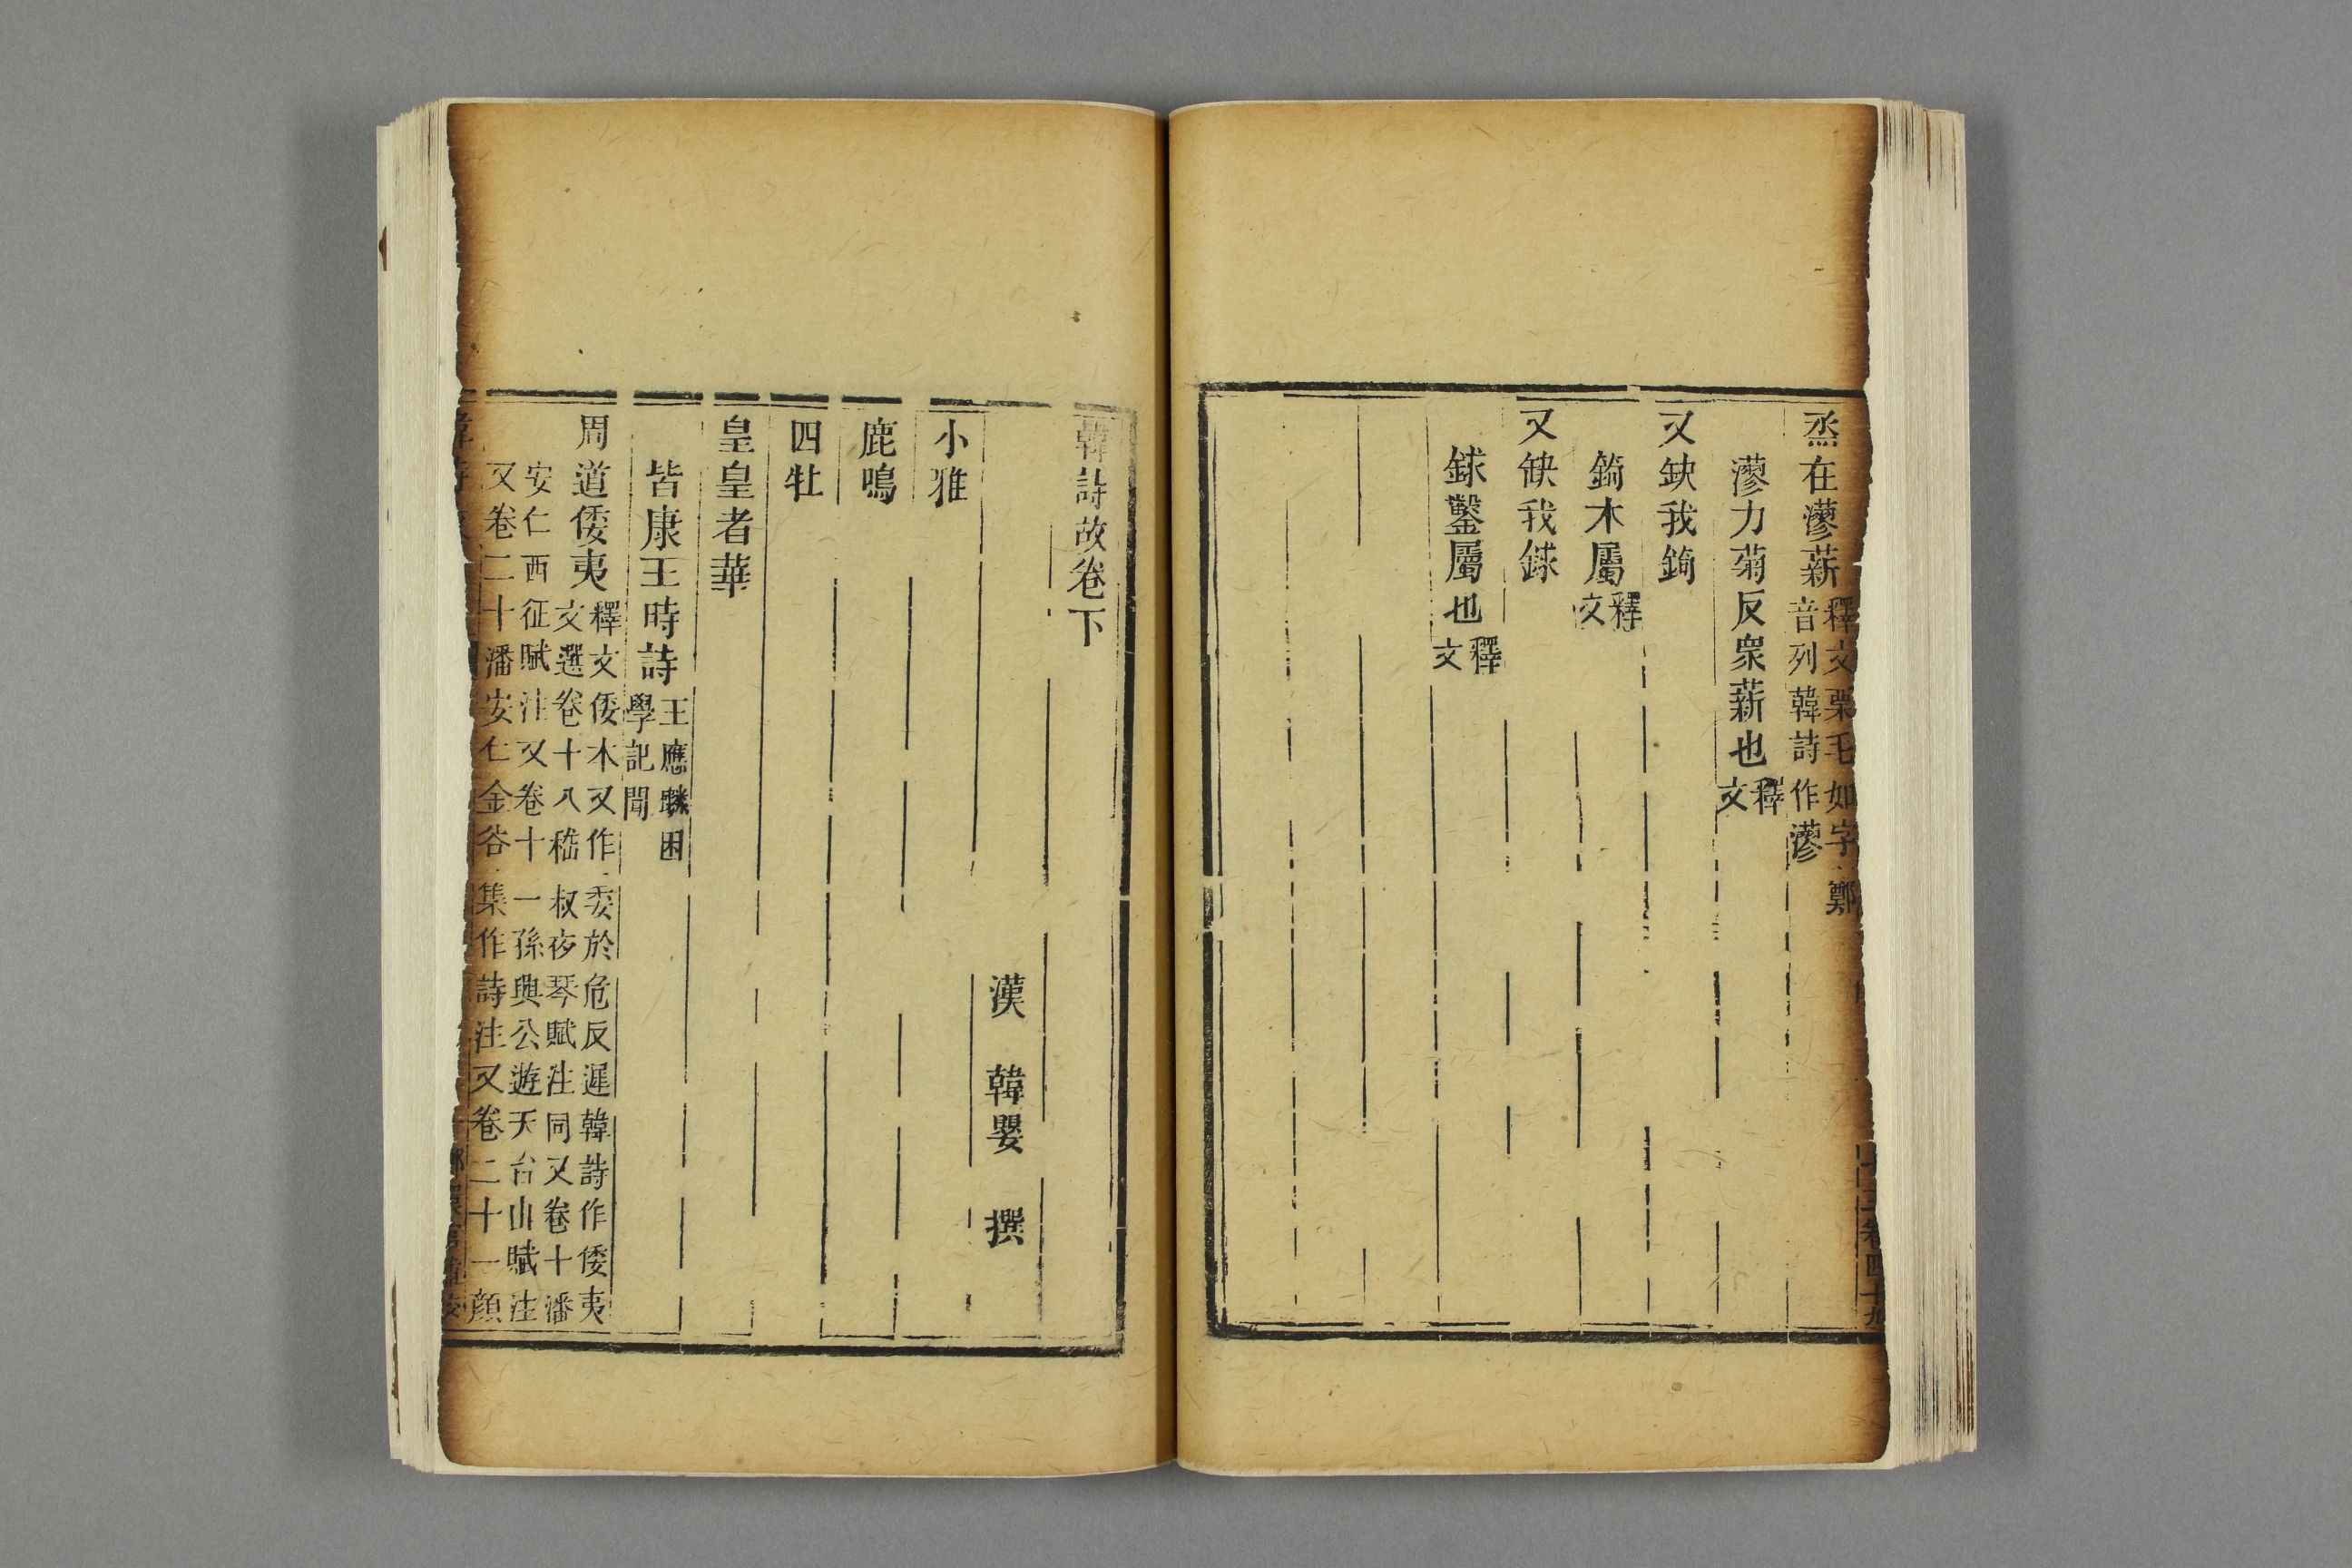 烝在蓼薪釋文栗毛如字鄭
音列韓詩作蓼
蓼力菊反衆薪也釋文
又缺我錡
錡木屬釋文
又缺我銶
銶鑿屬也釋文
卷四十九
韓詩故卷下
漢 韓嬰 撰
小雅
鹿鳴
四牡
皇皇者華
皆康王時詩王應麟困
學記聞
周道倭夷釋文倭木又作委於危反遲韓詩作倭夷
文選卷十八嵇叔夜琴賦注同又卷十潘
安仁西征賦注又卷十一孫興公遊天台山賦注
又卷二十潘安仁金谷集作詩注又卷二十一顔